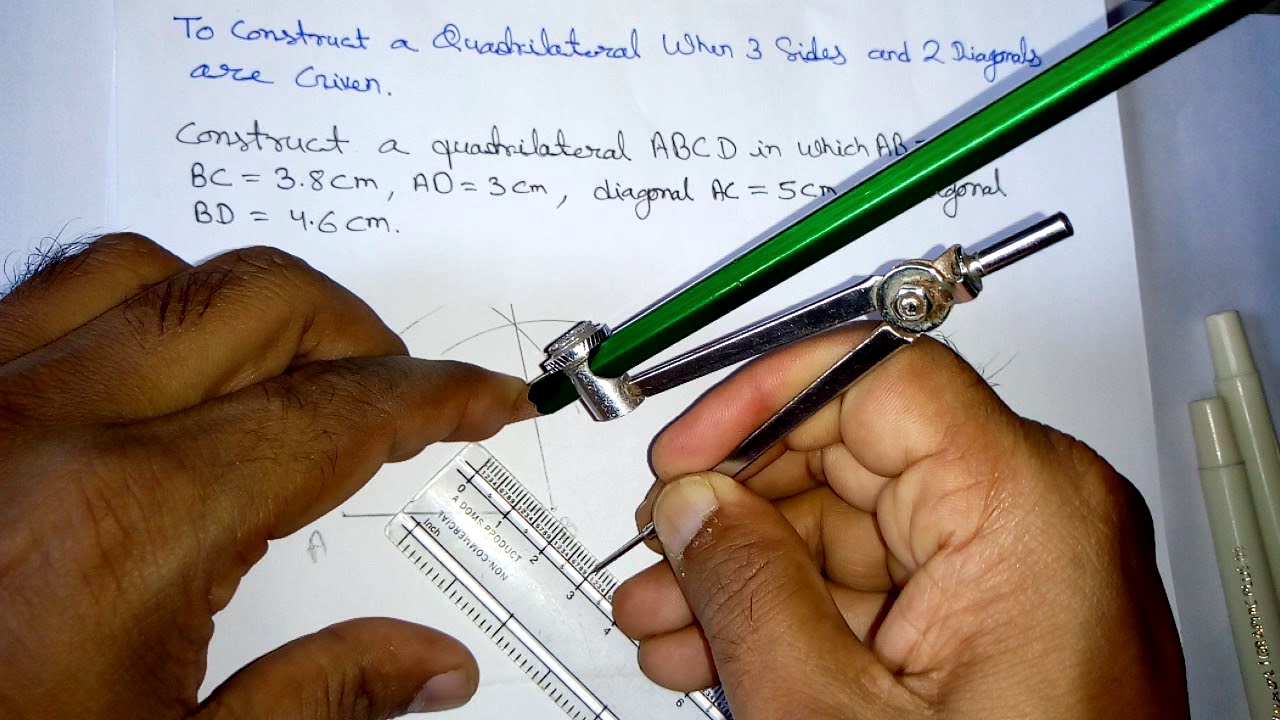 To Construct a Quadrilateral When 3 Sides and 2 Diagonals
are Given.
Construct a quadrilateral ABCD in which AB=
BC = 3.8cm, AD = 3cm, diagonal AC = 5cm
BD = 4.6cm.
A
0 1 2 3 4 6
Inch
ADOMS PRODUCT
NON COMMERCIAL